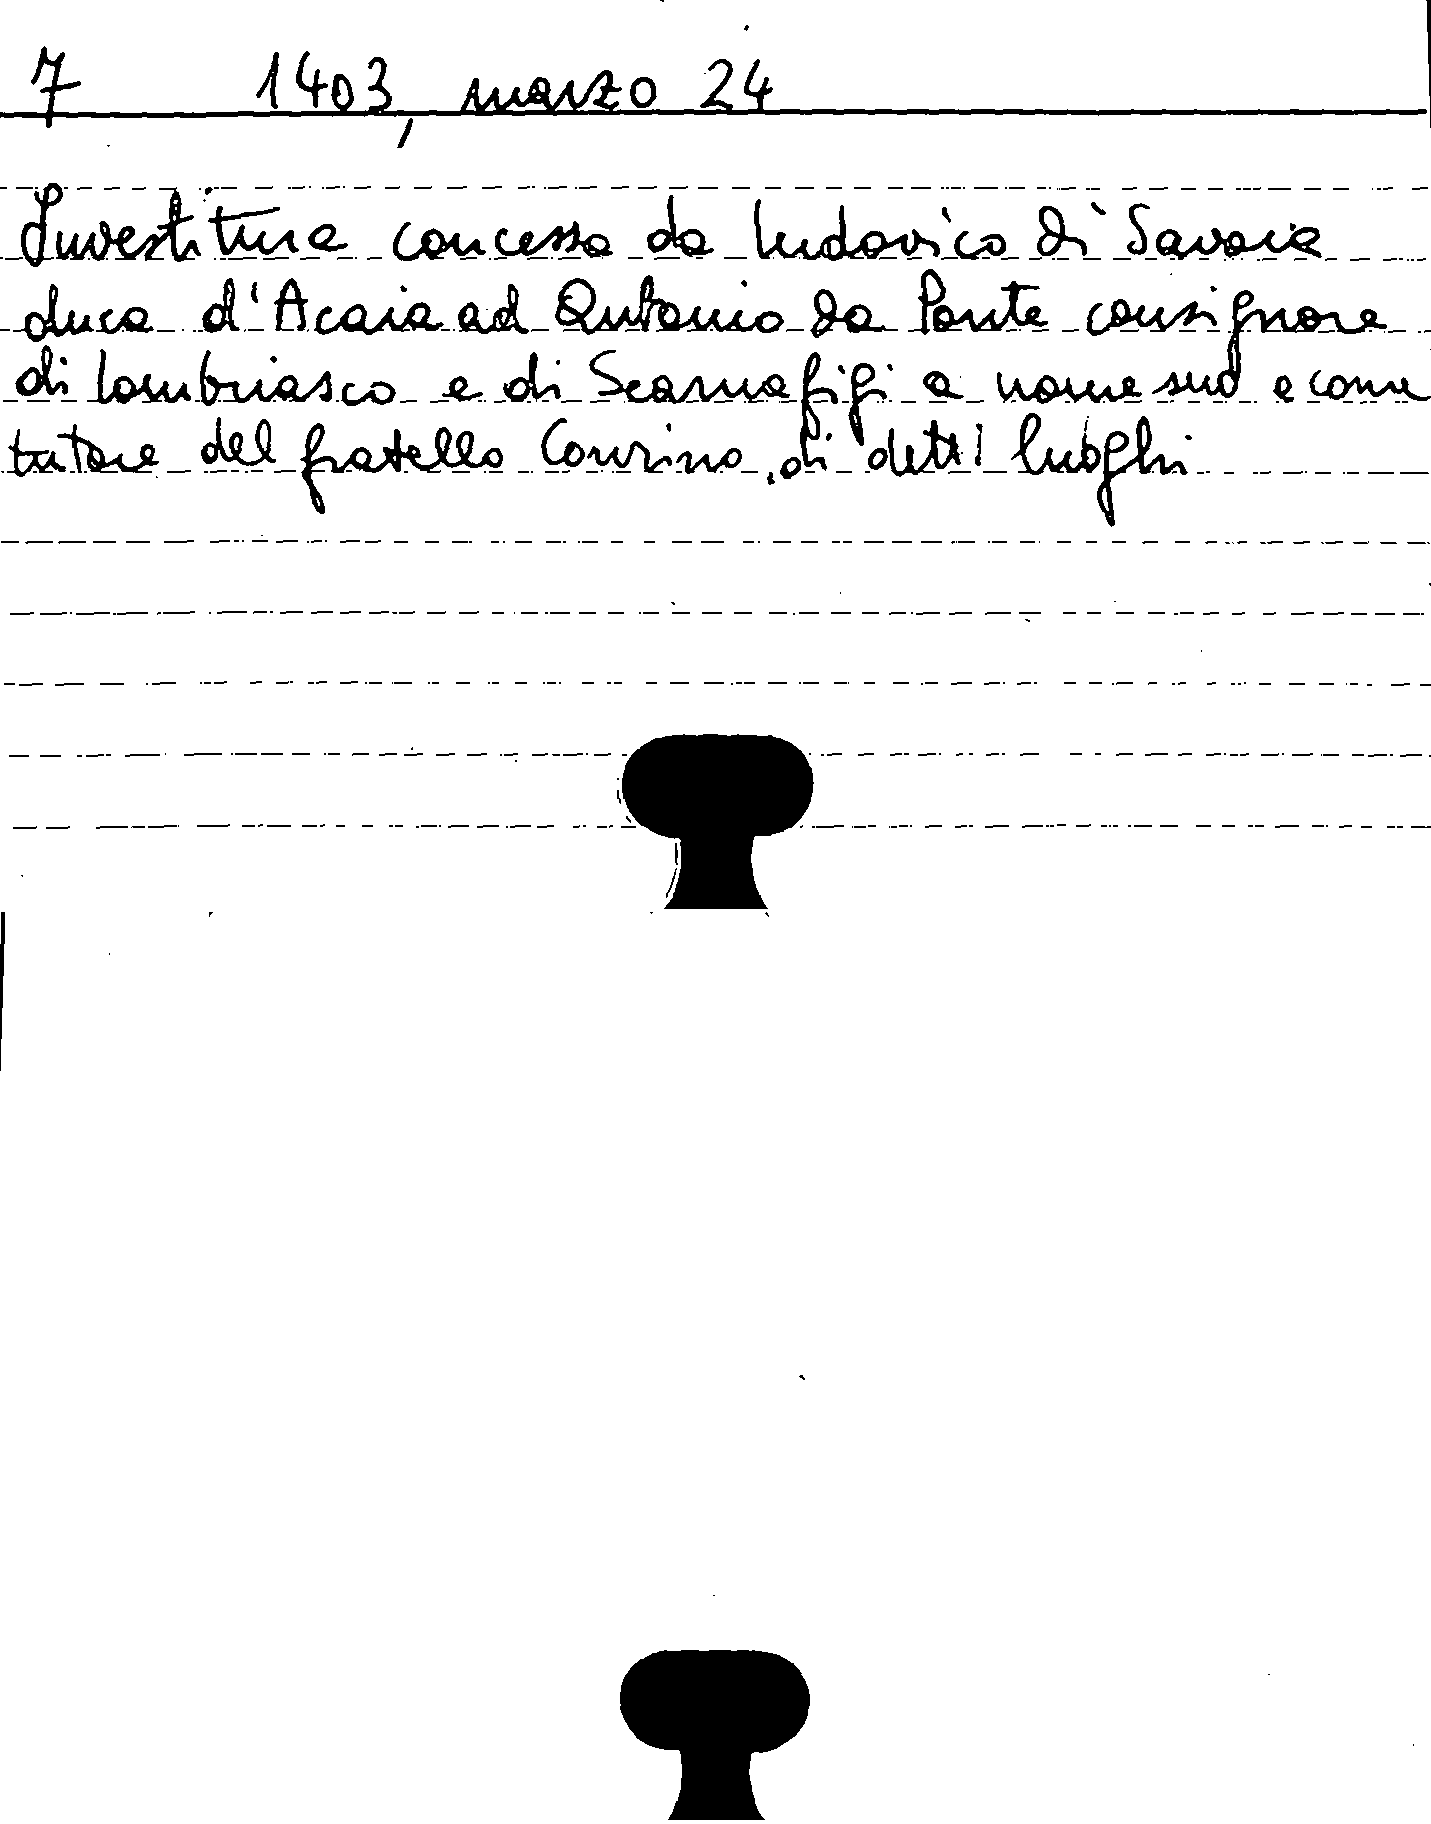 7 1403, marzo 24
Investitura concessa da Ludovico di Savoia
duca d'Acaia ad Antonio da Ponte consignore
di Lombriasco e di Scarnafigi a nome suo e come
tutore del fratello Corrino, di detti luoghi